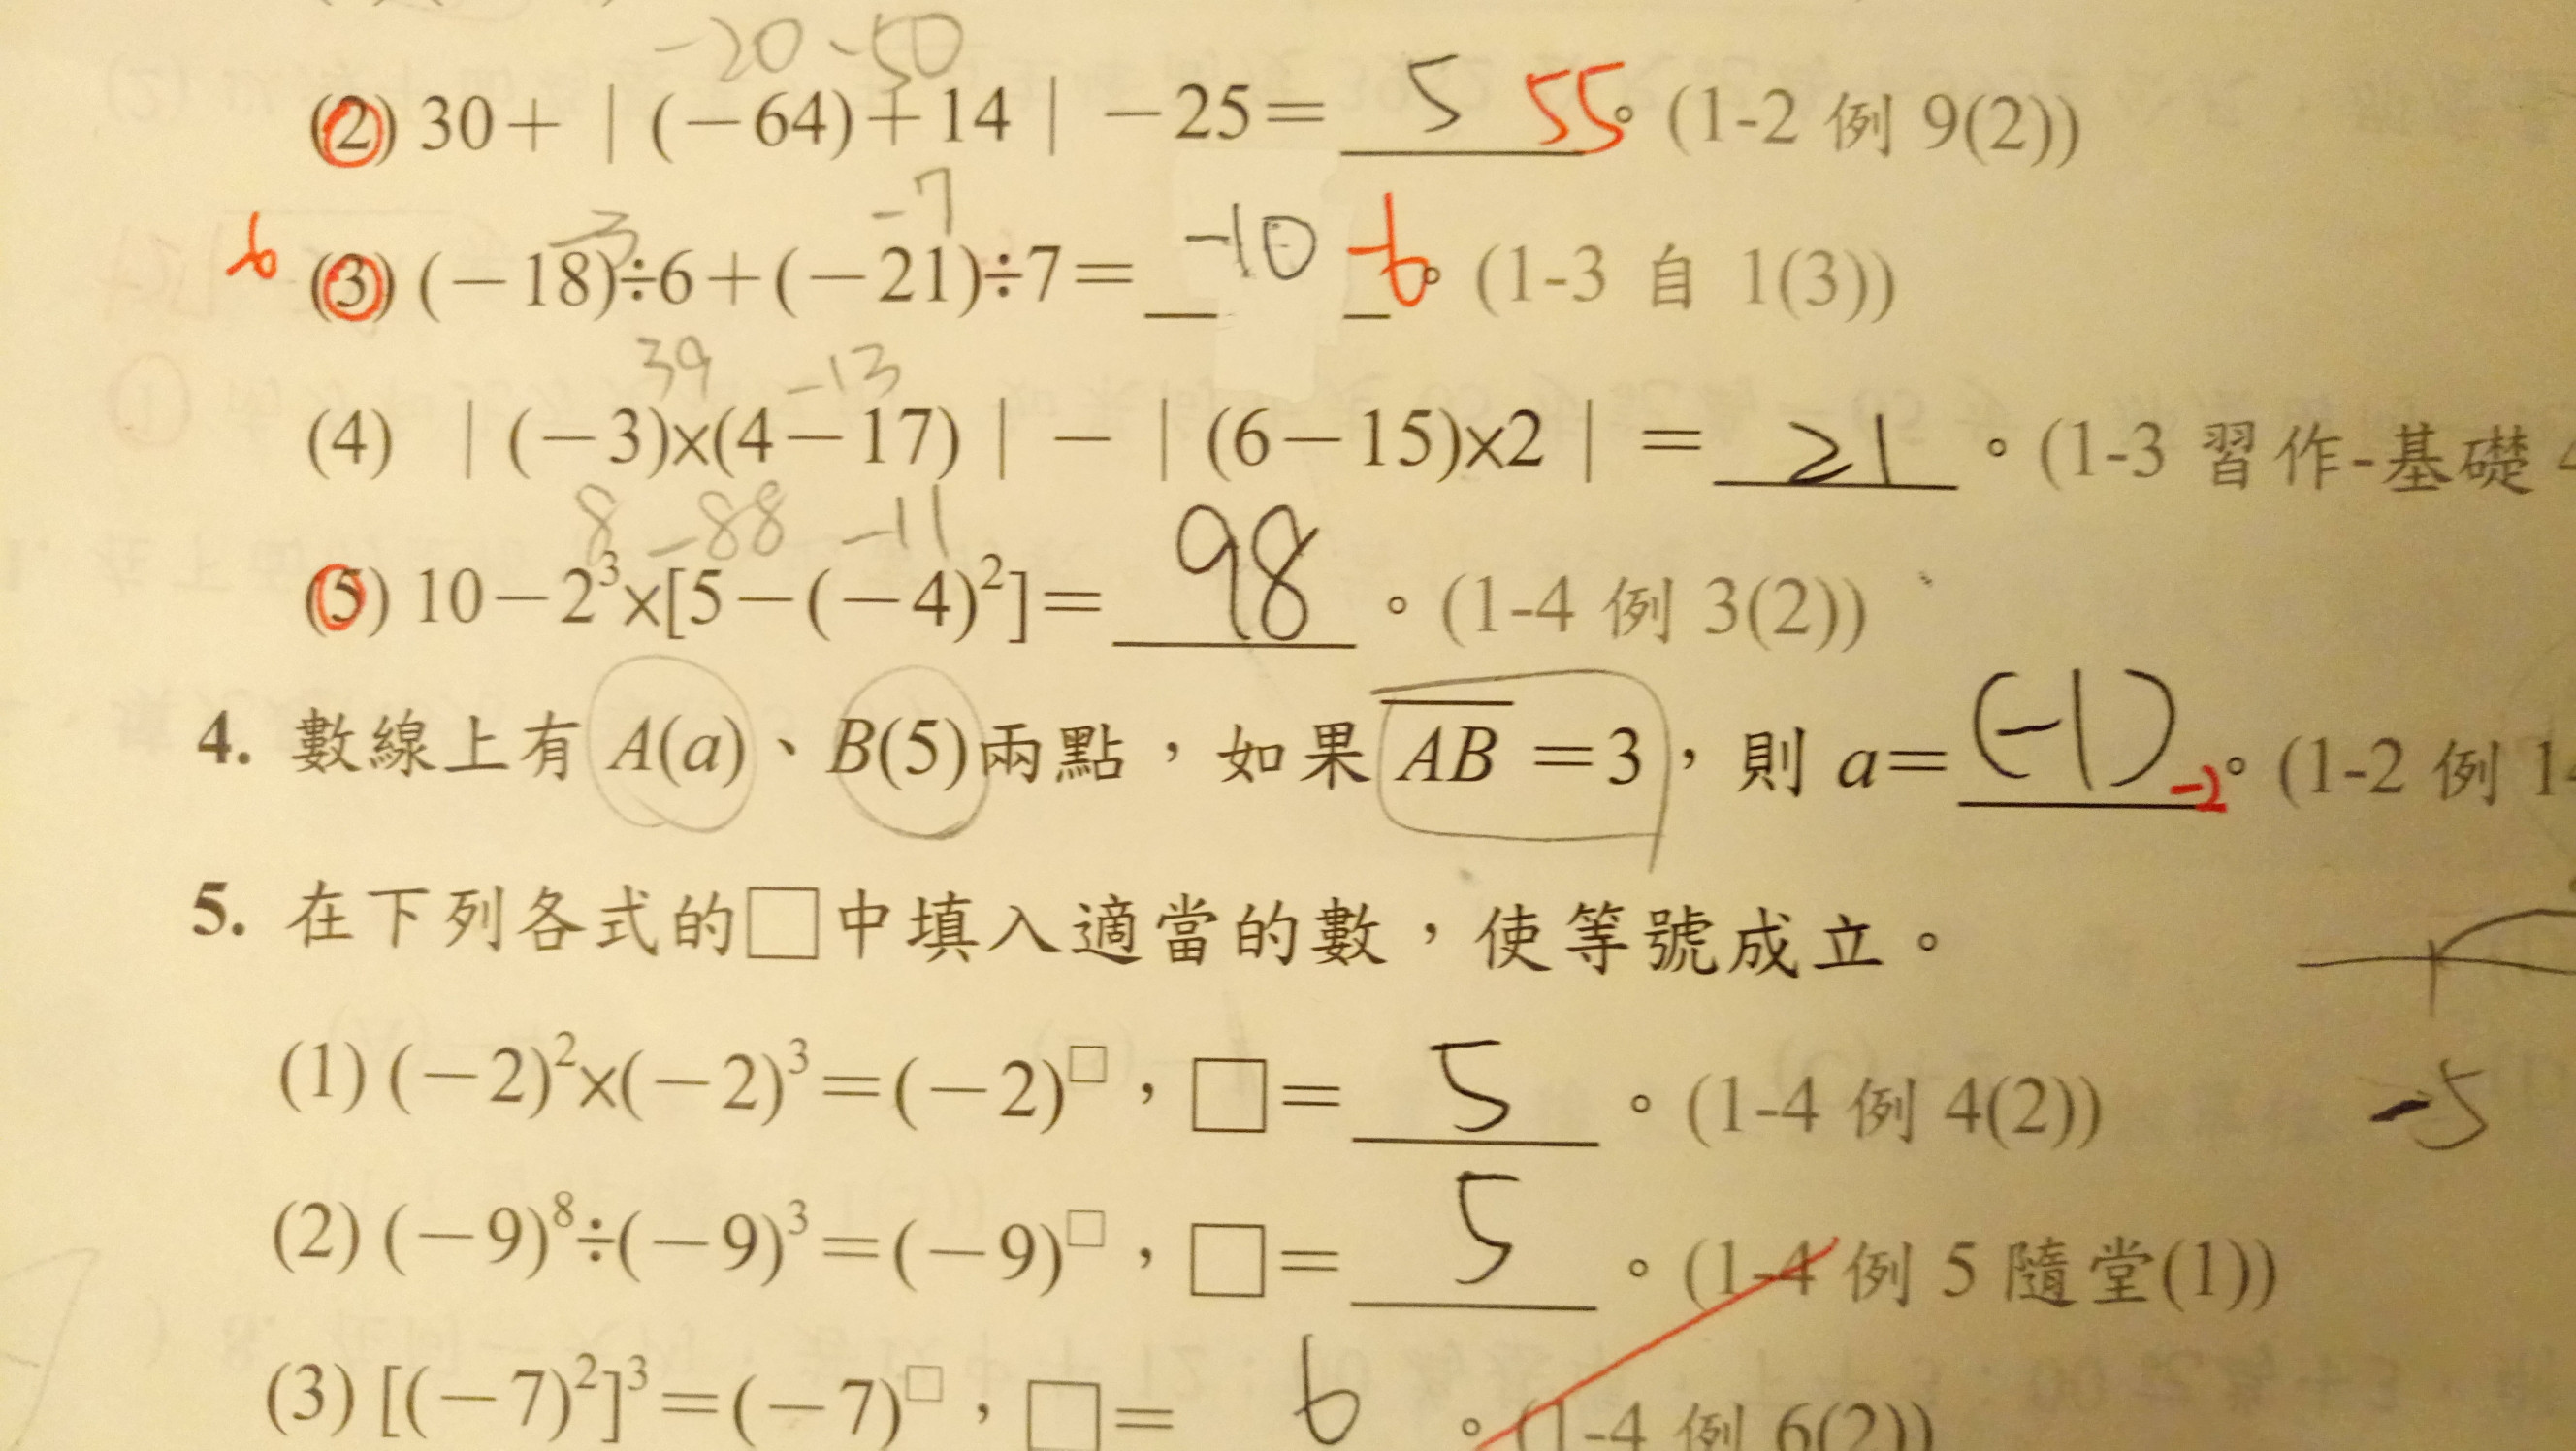 -20 -50
(2) 30+|(-64)+14|-25= 5 55。(1-2 例 9(2))
-3 -7
-6 (3) (-18)÷6+(-21)÷7= -10 -6。(1-3 自 1(3))
39 -13
(4) |(-3)×(4-17)|-|(6-15)×2|= 21。(1-3 習作-基礎 4
8 -88 -11
(5) 10-2³×[5-(-4)²]= 98。(1-4 例 3(2))
4. 數線上有 A(a)、B(5)兩點,如果 A̅B̅=3,則 a= (-1) -2。(1-2 例 14
5. 在下列各式的□中填入適當的數,使等號成立。
(1) (-2)²×(-2)³=(-2)^□,□= 5。(1-4 例 4(2))
-5
(2) (-9)⁸÷(-9)³=(-9)^□,□= 5。(1-4 例 5 隨堂(1))
(3) [(-7)²]³=(-7)^□,□= 6。(1-4 例 6(2))